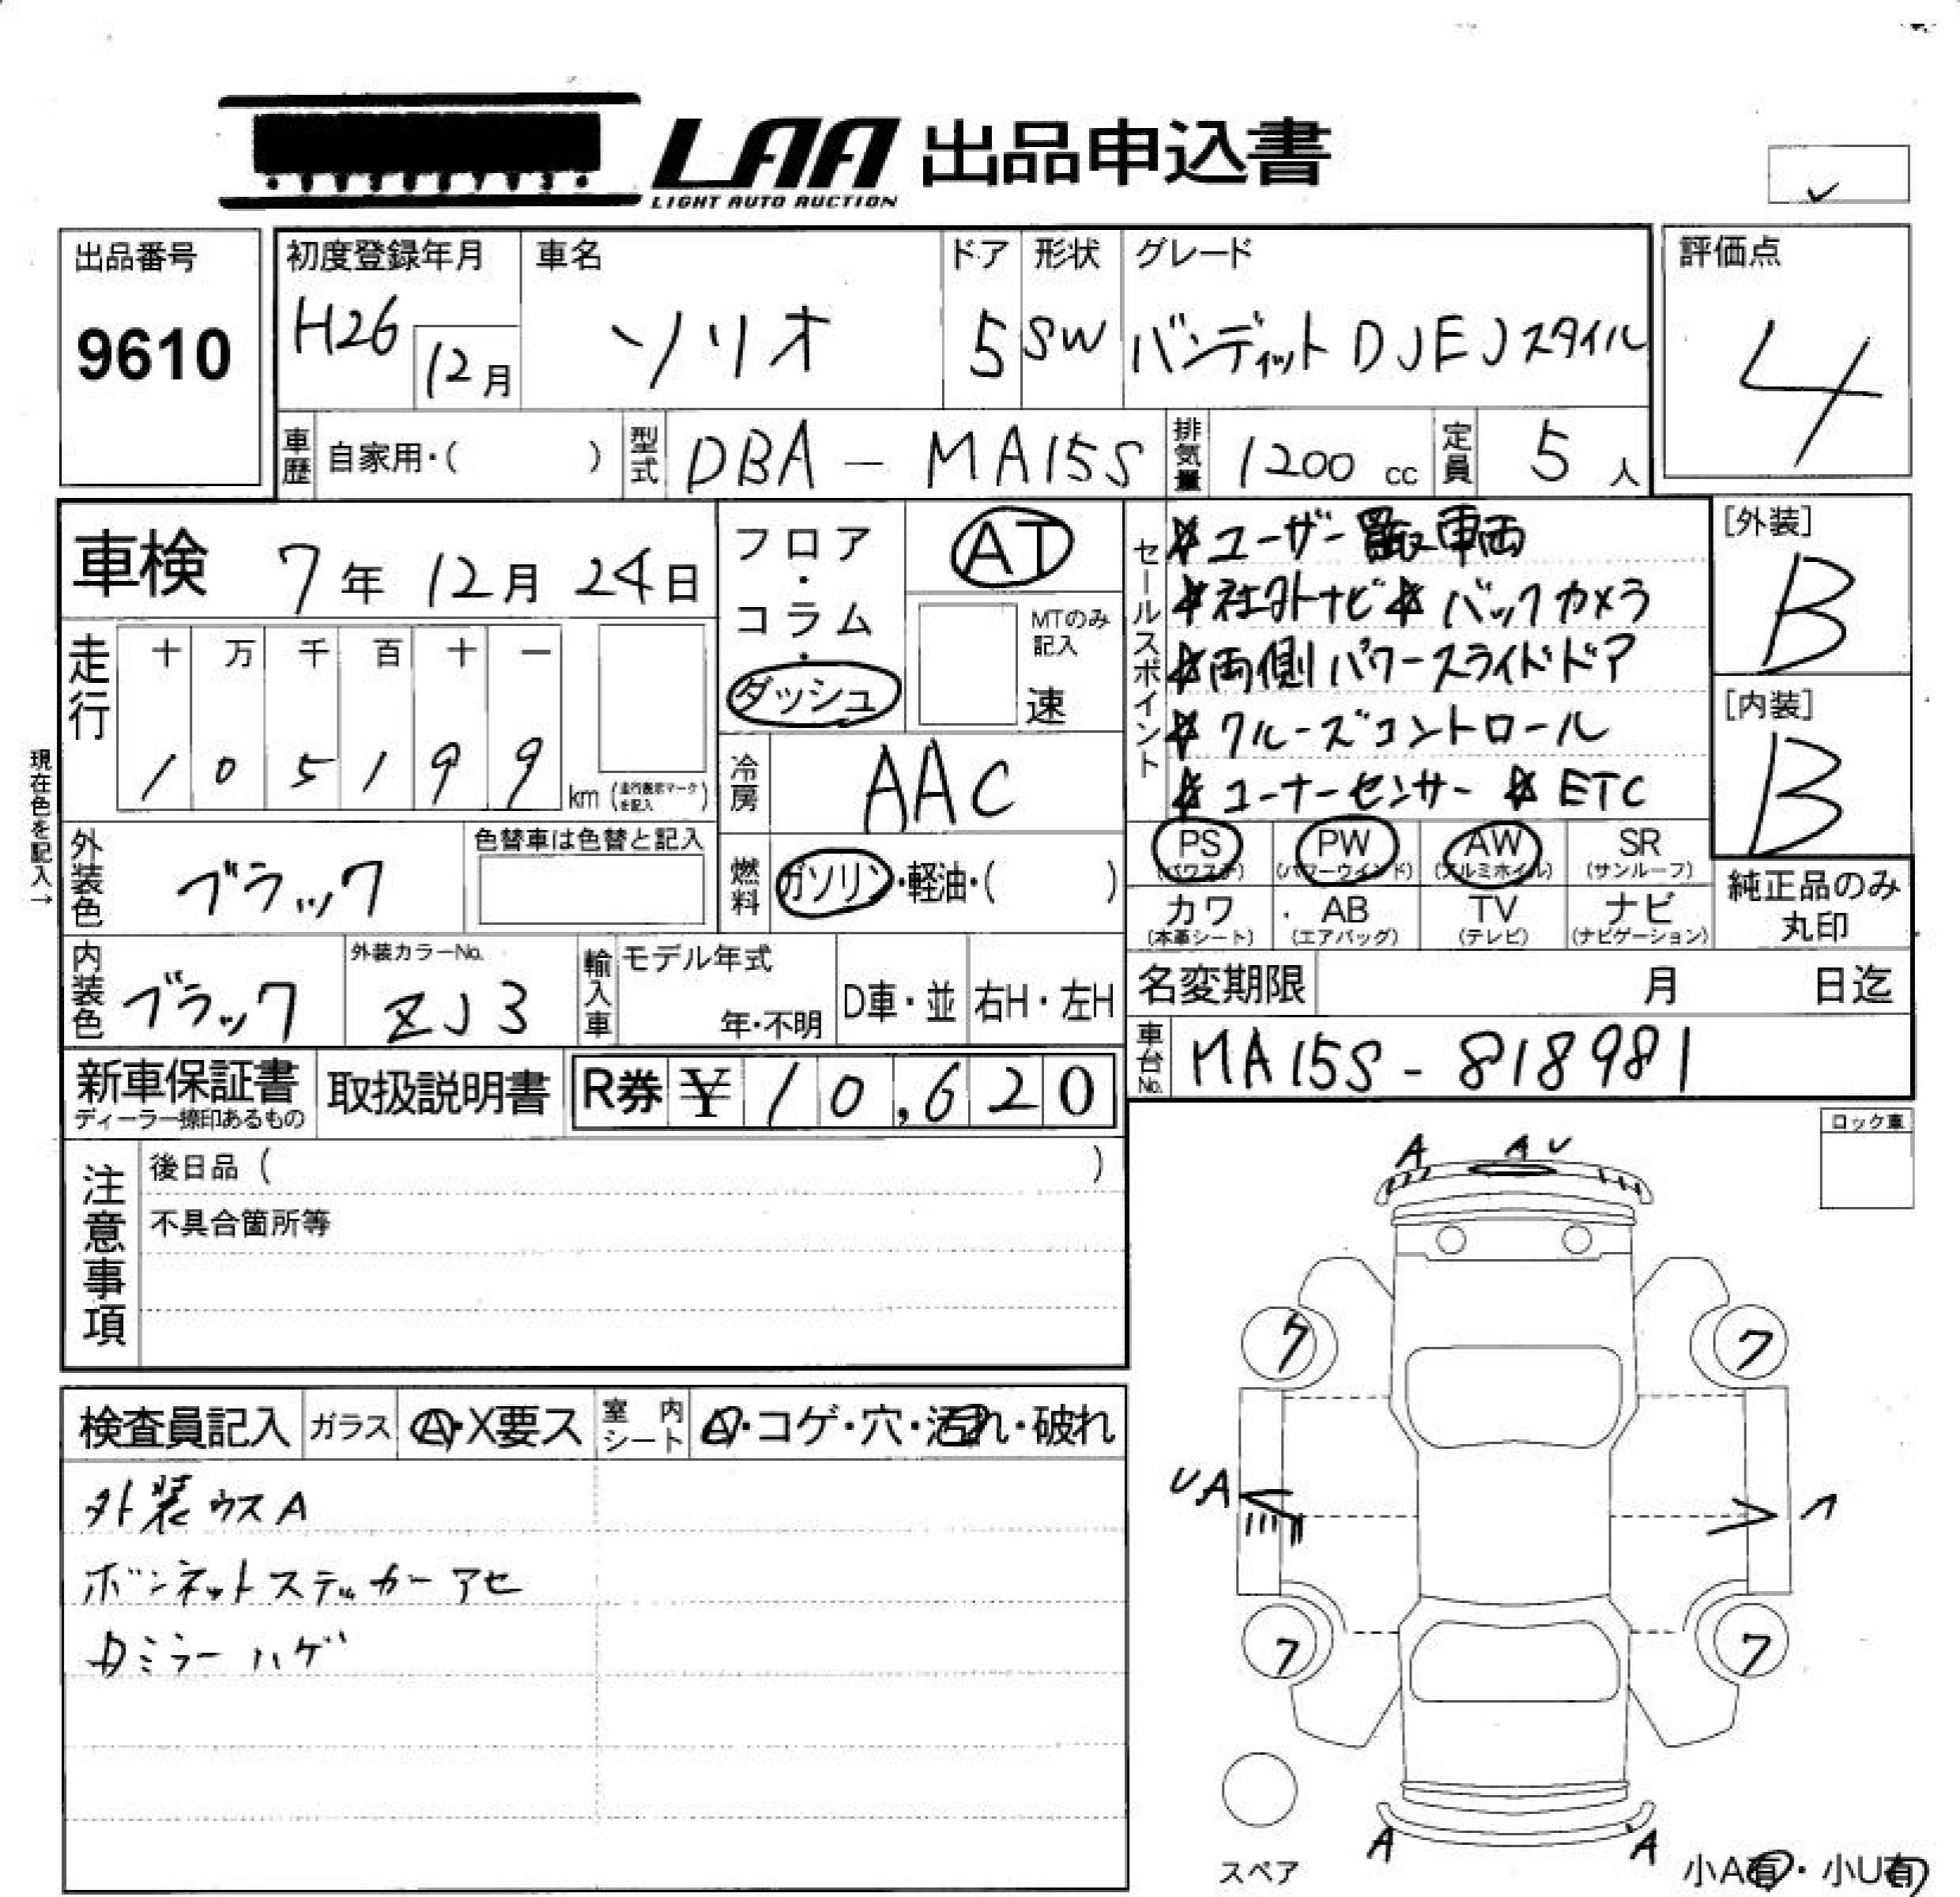 LAA 出品申込書
LIGHT AUTO AUCTION
出品番号
9610
初度登録年月
H26 12月
車名
ソリオ
ドア
5
形状
SW
グレード
バンディット DJEJスタイル
評価点
4
車歴 自家用・( )
型式 DBA-MA15S
排気量 1200 cc
定員 5 人
車検 7年 12月 24日
フロア・コラム・ダッシュ
AT
MTのみ記入
速
セールスポイント
☆ユーザー買取車両
☆社外ナビ☆バックカメラ
☆両側パワースライドドア
☆クルーズコントロール
☆コーナーセンサー ☆ETC
[外装]
B
[内装]
B
走行
十 万 千 百 十 一
1 0 5 1 9 9 km (走行表示マークを記入)
現在色を記入→
冷房 AAC
外装色 ブラック
色替車は色替と記入
燃料 ガソリン・軽油・( )
PS (パワステ)
PW (パワーウインド)
AW (アルミホイル)
SR (サンルーフ)
カワ (本革シート)
AB (エアバッグ)
TV (テレビ)
ナビ (ナビゲーション)
純正品のみ
丸印
内装色 ブラック
外装カラーNo.
ZJ3
輸入車
モデル年式
年・不明
D車・並
右H・左H
名変期限 月 日迄
車台No. MA15S-818981
新車保証書
ディーラー捺印あるもの
取扱説明書
R券 ¥ 10,620
注意事項
後日品 ( )
不具合箇所等
ロック車
検査員記入
ガラス
A・X要ス
室内シート
A・コゲ・穴・汚れ・破れ
外装ウスA
ボンネットステッカーアセ
カミラーハゲ
A A ✓
ク ワ
UA
ヘ
ワ ワ
A A
スペア
小A有・小U有